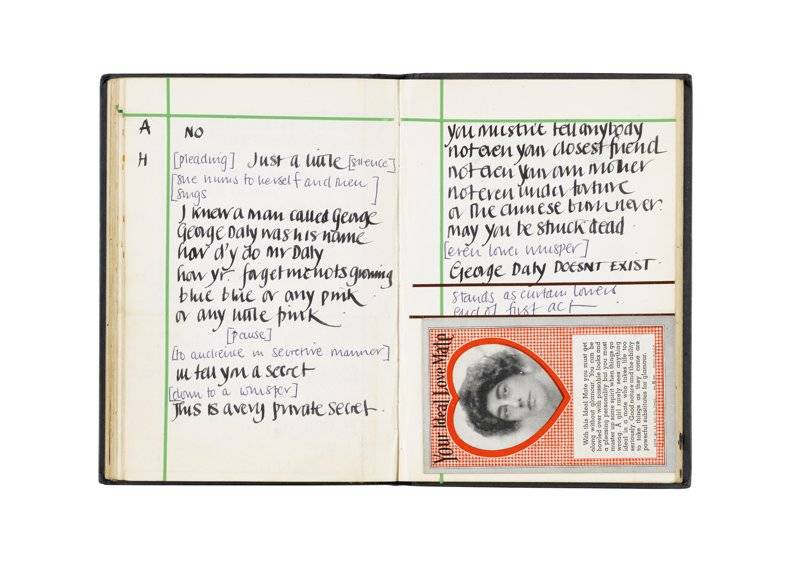 A NO
H [pleading] Just a little [silence]
[she hums to herself and then
sings]
I knew a man called George
George Daly was his name
how d'y do Mr Daly
how yr forget me nots growing
blue blue or any pink
or any little pink
[pause]
[to audience in secretive manner]
ill tell you a secret
[down to a whisper]
This is a very private secret.
you mustn't tell anybody
not even your closest friend
not even your own mother
not even under torture
or the chinese burn never
may you be struck dead
[even lower whisper]
George Daly DOESNT EXIST
stands as curtain lowers
end of first act
Your Ideal Love Mate
With this Ideal Mate you must get
along without glamour. You can be
bowled over with passable looks and
a pleasing personality but you must
muster up some spirit when things go
wrong. A girl rarely sees anything
ideal in a mate who takes life too
seriously. Good nature and the ability
to take things as they come are
powerful substitutes for glamour.